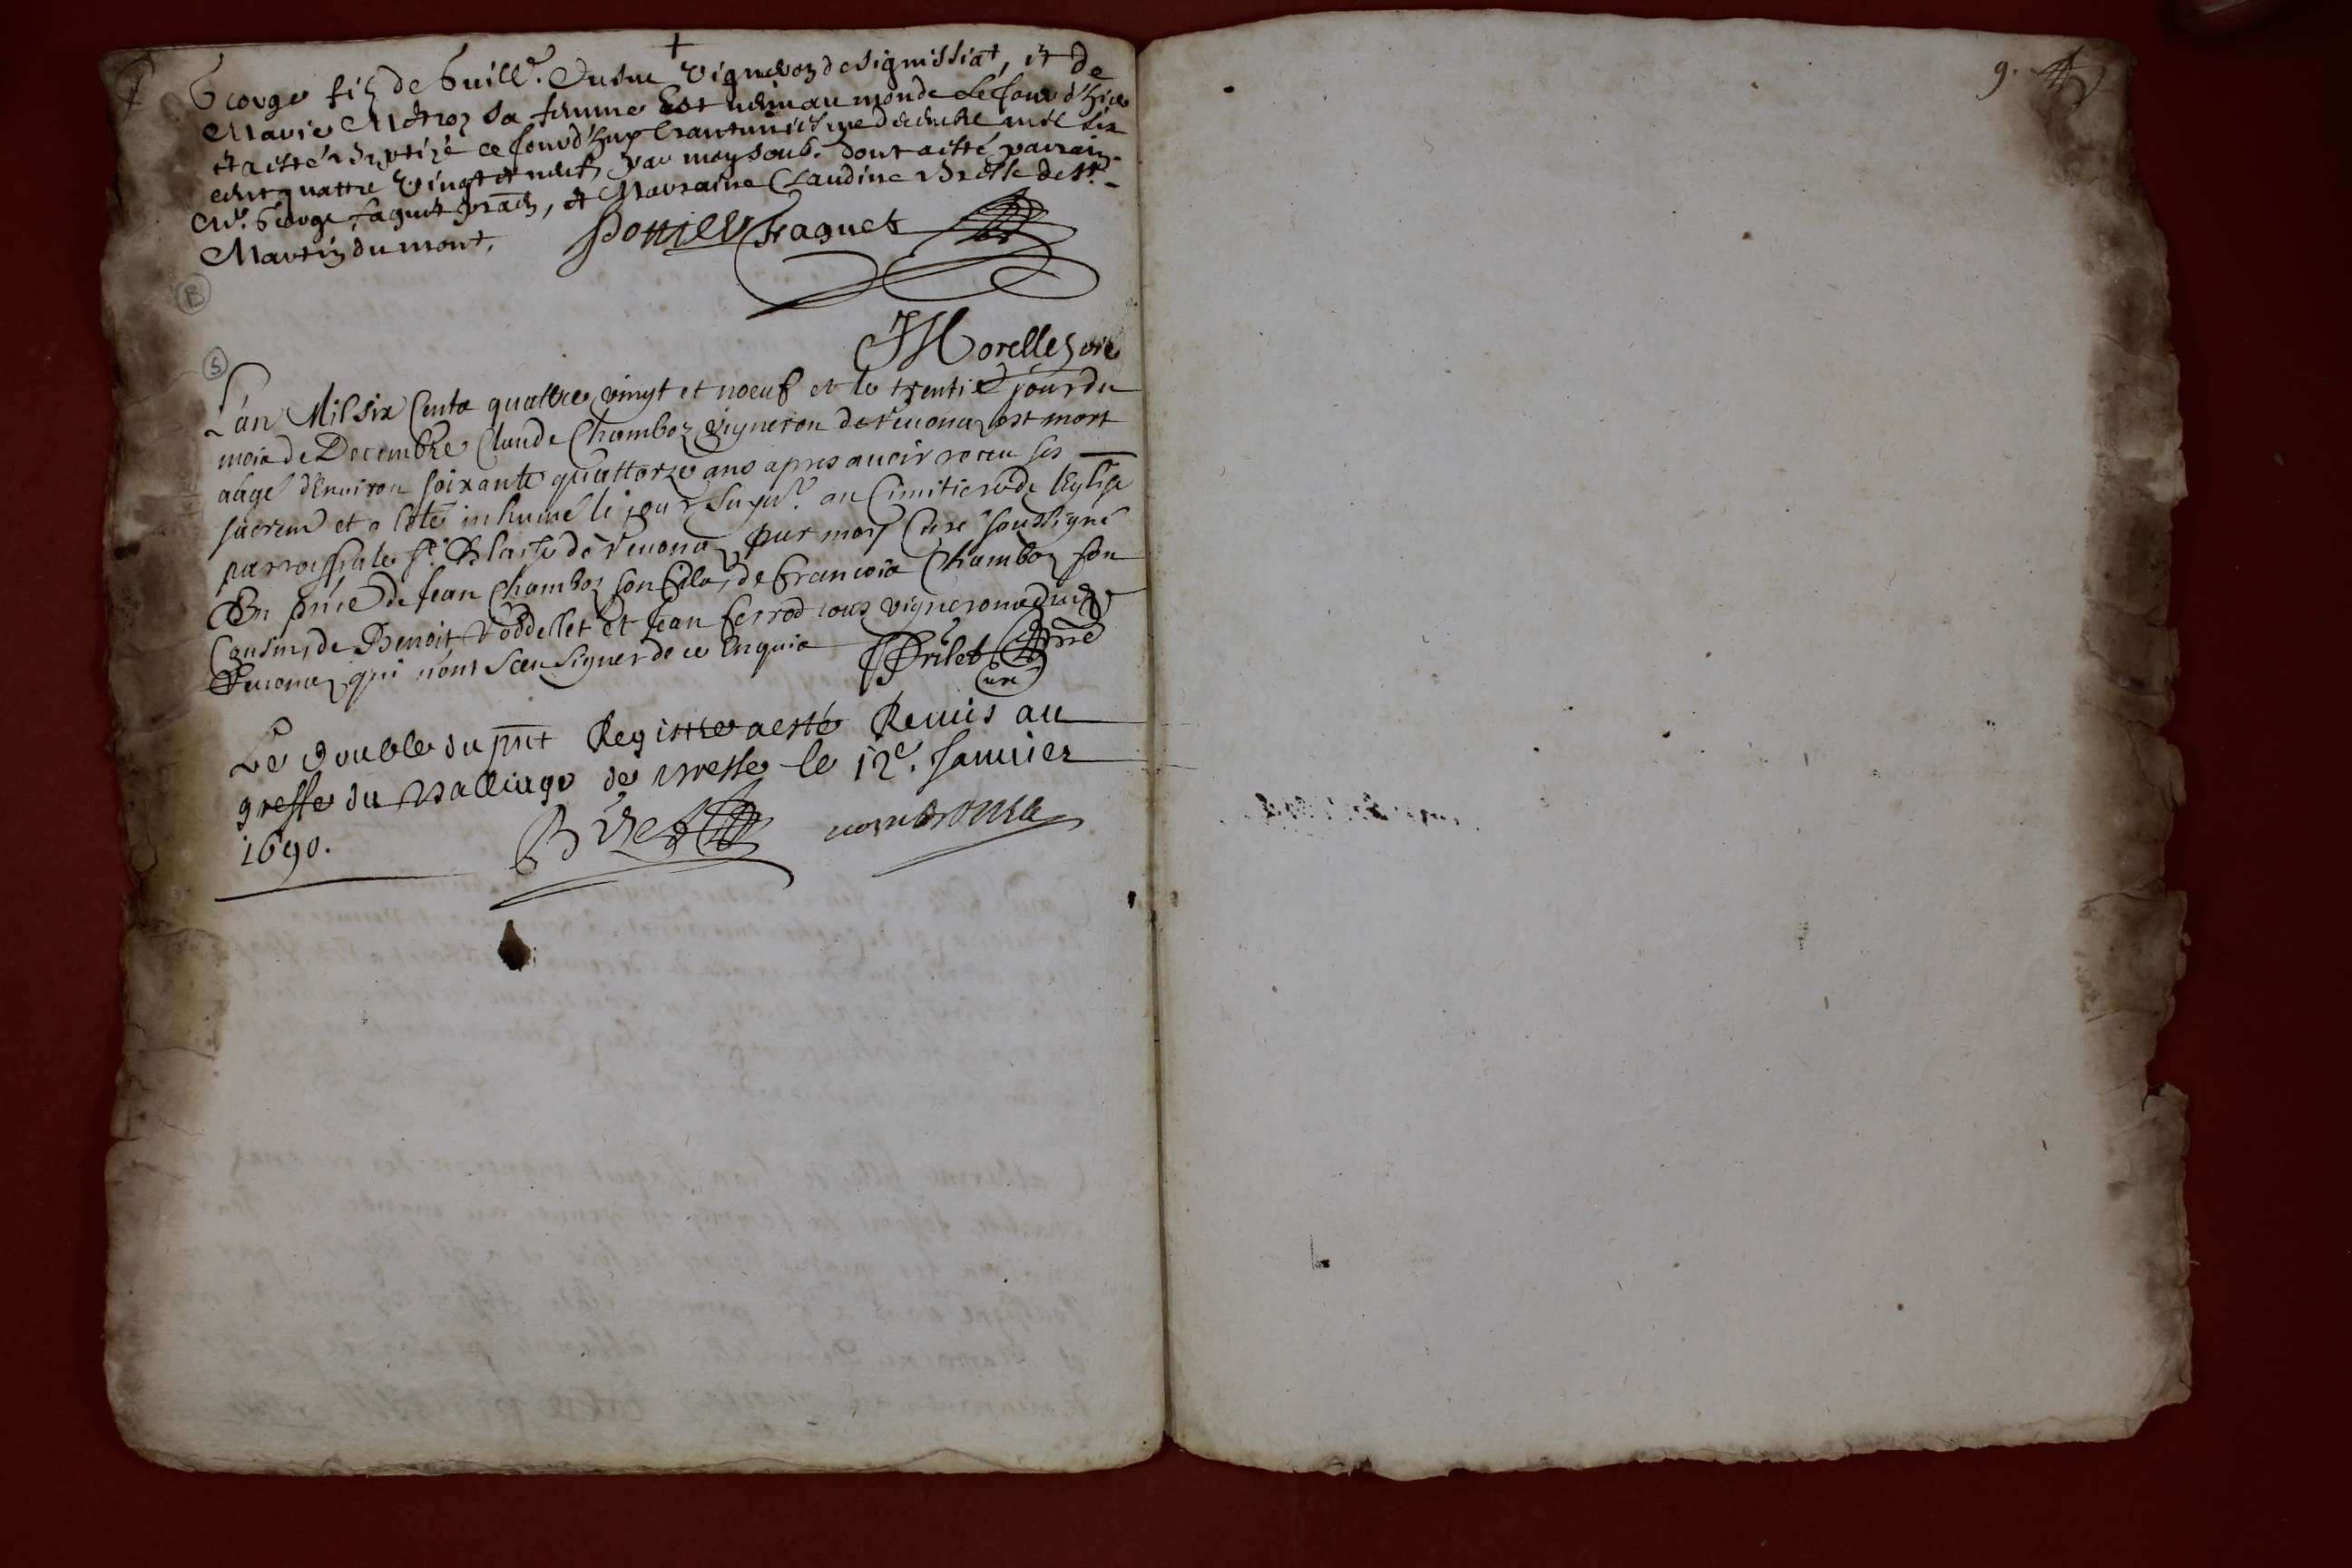 +
George filz de Guill.e vigneron de signissiat, et de
Marie sa femme Est venu au monde Le Jour d'hier
et a esté Baptizé ce Jourd'huy trantuniesme decembre mil six
cent quattre vingt et neuf par moy soub. dont a esté parrain
Mr. George faguet prãtz, et Marraine Claudine de St.
Martin du mont.
Faguet
B
Morellet
S
L'an Mil six Cents quattre vingt et noeuf et le trentie jour du
mois de Decembre Claude Chamboz vigneron de reuonaz est mort
aagé d'Enuiron soixante quattorze ans apres auoir receu ses
sacremt et a Esté inhumé le jour suyut. au Cimitiere de lEglise
parroissiale St. Blaise de reuona par moy Curé soubsigné
En pñce de Jean Chamboz son fils, de francois Chamboz son
Cousin, de Benoit et Jean ferrod tous vignerons dud
Reuonaz qui n'ont sceu signer de ce Enquis
Curé
Le double du pñt Registre a esté Remis au
greffe du Balliage de Bresse le 12e. Januier
1690.
9.